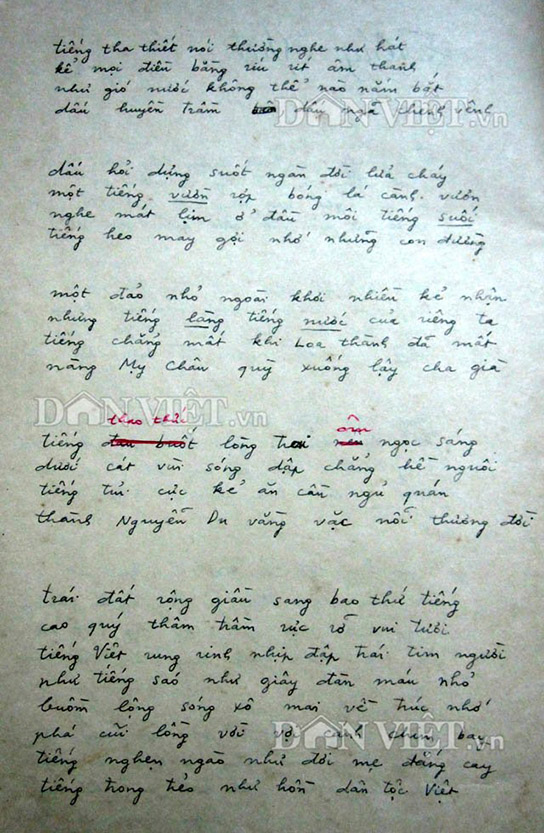 tiếng tha thiết nói thường nghe như hát
kể mọi điều bằng ríu rít âm thanh
như gió nước không thể nào nắm bắt
dấu huyền trầm dấu ngã chênh vênh
DÂNVIỆT.vn
dấu hỏi dựng suốt ngàn đời lửa cháy
một tiếng vườn rợp bóng lá cành vươn
nghe mát lịm ở đầu môi tiếng suối
tiếng heo may gợi nhớ những con đường
một đảo nhỏ ngoài khơi nhiều kẻ nhận
nhưng tiếng làng tiếng nước của riêng ta
tiếng chẳng mất khi Loa thành đã mất
nàng Mỵ Châu quỳ xuống lậy cha già
DÂNVIỆT.vn
thao thức ôm
tiếng đau buốt lòng trai nên ngọc sáng
dưới cát vùi sóng dập chẳng hề nguôi
tiếng tủi cực kẻ ăn cầu ngủ quán
thành Nguyễn Du vằng vặc nỗi thương đời
trái đất rộng giầu sang bao thứ tiếng
cao quý thâm trầm rực rỡ vui tươi
tiếng Việt rung rinh nhịp đập trái tim người
như tiếng sáo như giây đàn máu nhỏ
buồm lộng sóng xô mai về trúc nhớ
phá cũi lồng vời vợi cánh chim bay
DÂNVIỆT.vn
tiếng nghẹn ngào như đời mẹ đắng cay
tiếng trong trẻo như hồn dân tộc Việt